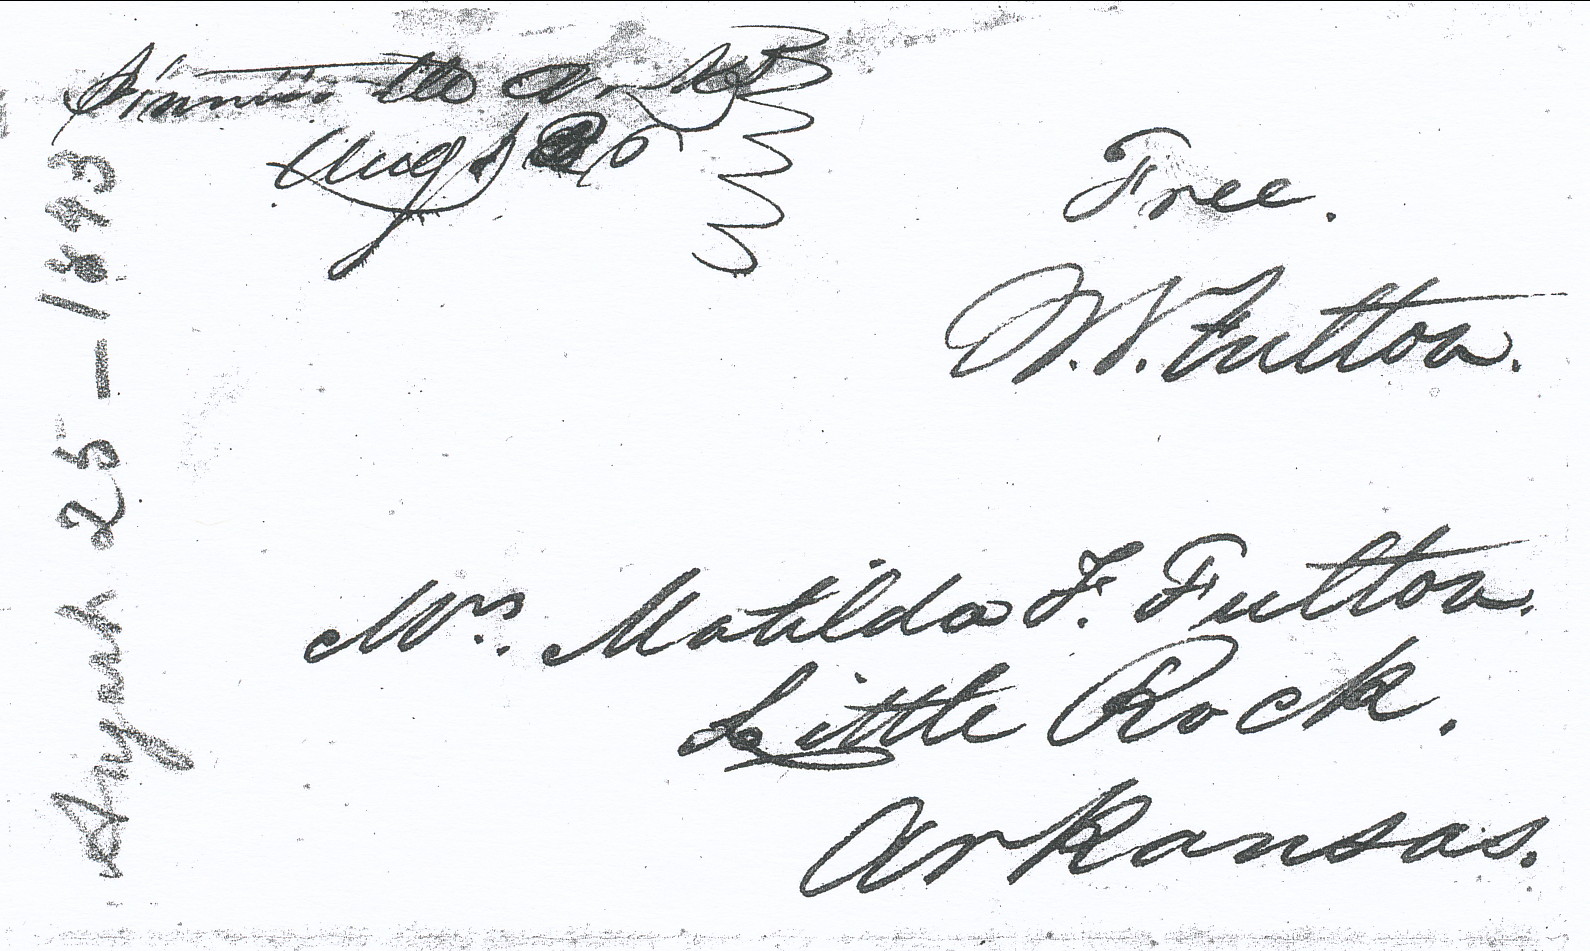 Ark
Aug
Free.
W. S. Fulton.
Mrs. Matilda F. Fulton.
Little Rock.
Arkansas.
August 25 — 1843